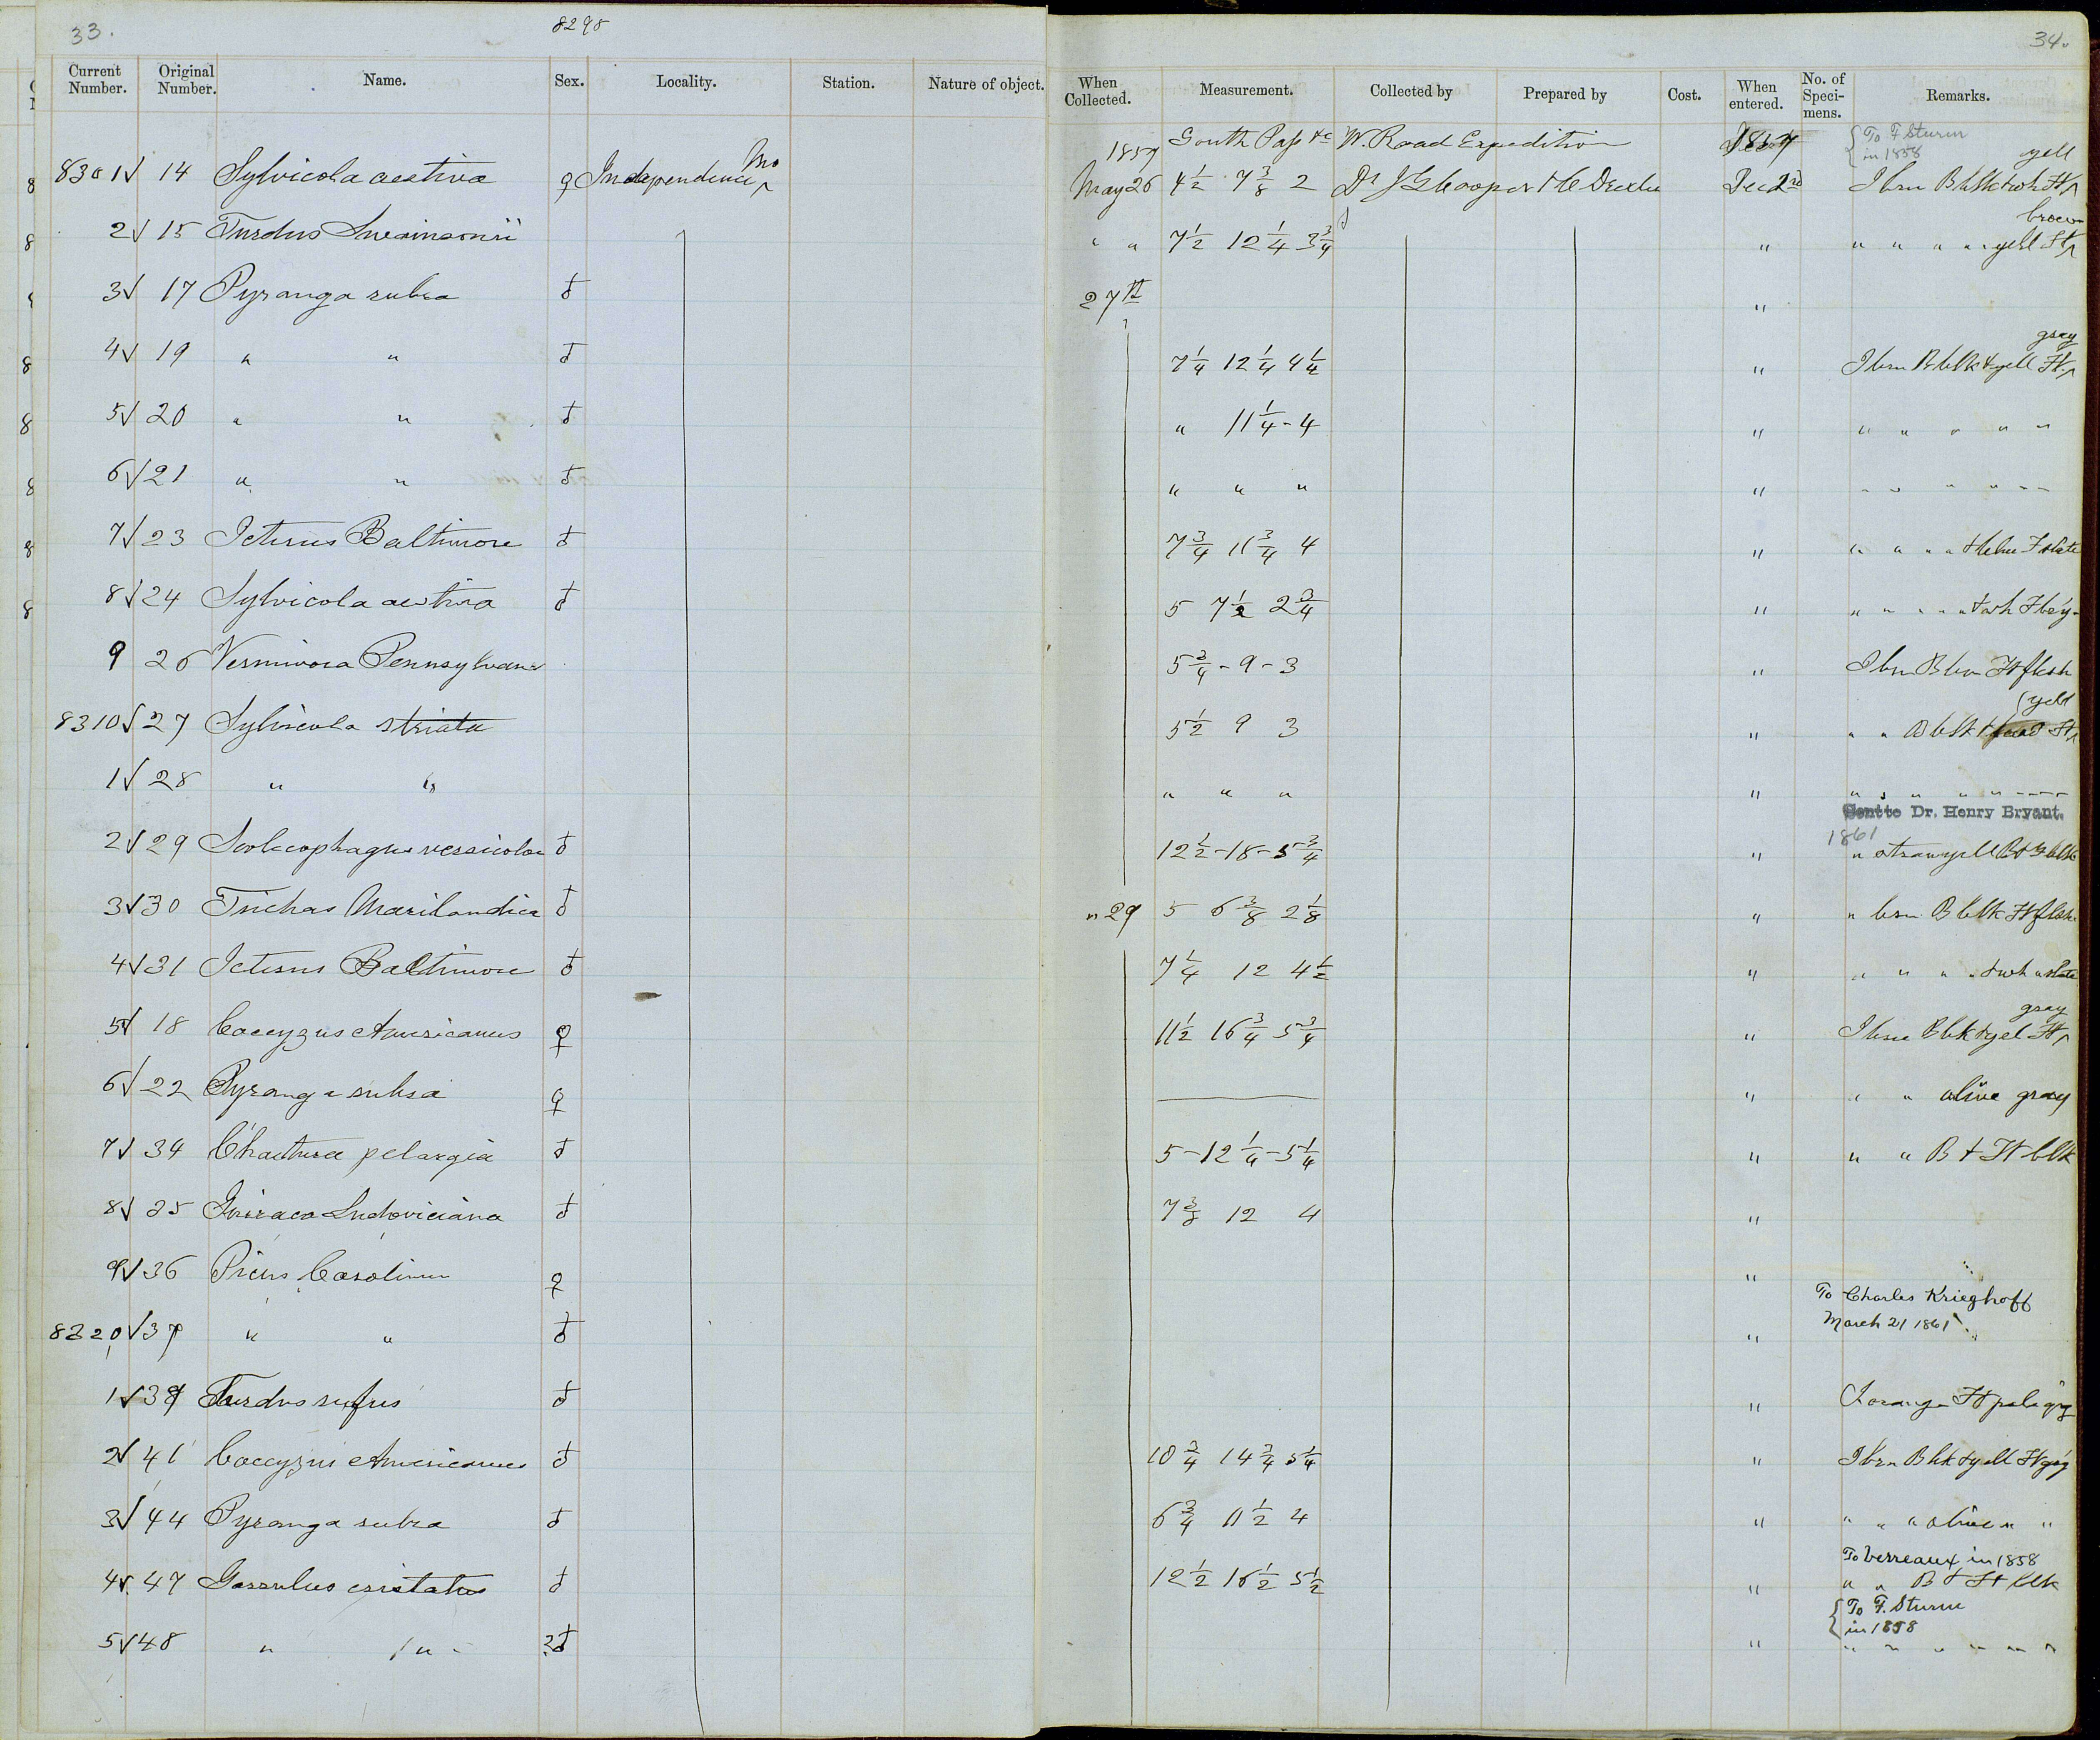 33.
8298
34.
Current Number. Original Number. Name. Sex. Locality. Station. Nature of object. When Collected. Measurement. Collected by Prepared by Cost. When entered. No. of Specimens. Remarks.
1857 South Pass &c W. Road Expedition 1857 { To F Sturm in 1858
8301 √ 14 Sylvicola aestiva ♀ Independence Mo May 26 4 1/2 7 3/8 2 Dr J G Cooper Dec 2nd I brn B blk & wh Ft yell
2 √ 15 Turdus Swainsonii " " 7 1/2 12 1/4 3 3/4 " " " " " yell Ft brown
3 √ 17 Pyranga rubra ♂ 27th "
4 √ 19 " " ♂ 7 1/4 12 1/4 4 1/4 " I brn B blk & yell Ft gray
5 √ 20 " " ♂ " 11 1/4 - 4 " " " " " "
6 √ 21 " " ♂ " " " " " " " " " "
7 √ 23 Icterus Baltimore ♂ 7 3/4 11 3/4 4 " " " " " & blue F slate
8 √ 24 Sylvicola aestiva ♂ 5 7 1/2 2 3/4 " " " " " " & wh F
9 26 Vermivora Pennsylvan 5 3/4 - 9 - 3 " I brn B brn Ft flesh
8310 √ 27 Sylvicola striata 5 1/2 9 3 " " " B blk & Ft yell
1 √ 28 " " " " " " " " " " "
Sent to Dr. Henry Bryant.
1861
2 √ 29 Scolecophagus versicolor ♂ 12 1/2 - 18 - 5 3/4 " " straw yell B & F blk
3 √ 30 Trichas Marilandica ♂ " 29 5 6 3/8 2 1/8 " " brn B blk Ft flesh
4 √ 31 Icterus Baltimore ♂ 7 1/4 12 4 1/2 " " " " " & wh " slate
5 √ 18 Coccyzus Americanus ♀ 11 1/2 16 3/4 5 3/4 " I brn B blk & yel Ft gray
6 √ 22 Pyranga rubra ♀ " " " olive gray
7 √ 34 Chaetura pelasgia ♂ 5 - 12 1/4 - 5 1/4 " " " B & Ft blk
8 √ 35 Guiraca Ludoviciana ♂ 7 3/8 12 4 "
9 √ 36 Picus Carolinus ♀ "
8320 √ 37 " " ♂ " To Charles Krieghoff March 21 1861
1 √ 39 Turdus rufus ♂ " I orange Ft pale
2 √ 41 Coccyzus Americanus ♂ 10 3/4 14 3/4 5 1/4 " I brn B blk & yell Ft gray
3 √ 44 Pyranga rubra ♂ 6 3/4 11 1/2 4 " " " " olive " "
To Verreaux in 1858
4 √ 47 Garrulus cristatus ♂ 12 1/2 16 1/2 5 1/2 " " " B & Ft blk
{ To F. Sturm in 1858
5 √ 48 " " ?♂ " " " " " " "